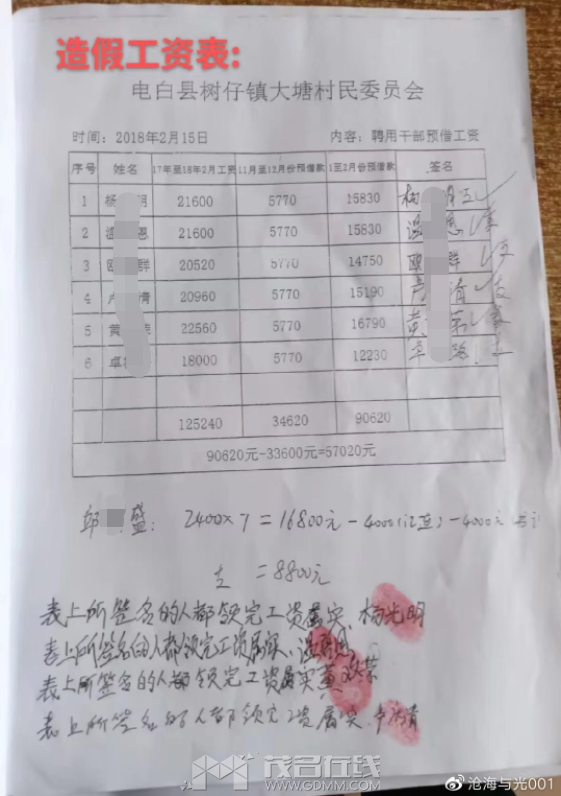 造假工资表:
电白县树仔镇大塘村民委员会
时间：2018年2月15日 内容：聘用干部预借工资
序号 姓名 17年至18年2月工资 11月至12月份预借款 1至2月份预借款 签名
1 杨 明 21600 5770 15830 杨
2 恩 21600 5770 15830 恩
3 欧 群 20520 5770 14750 欧 群
4 卢 清 20960 5770 15190 卢 清
5 黄 荣 22560 5770 16790 黄
6 卓 18000 5770 12230 卓
125240 34620 90620
90620元-33600元=57020元
邱 盛： 2400×7=16800元-4000 -4000元
支 =8800元
表上所签名的人都领完工资属实、杨光明
表上所签名的人都领完工资属实、
表上所签名的人都领完工资属实黄 荣
表上所签名的人都领完工资属实、卢 清
茂名在线
WWW.GDMM.COM
沧海与光001